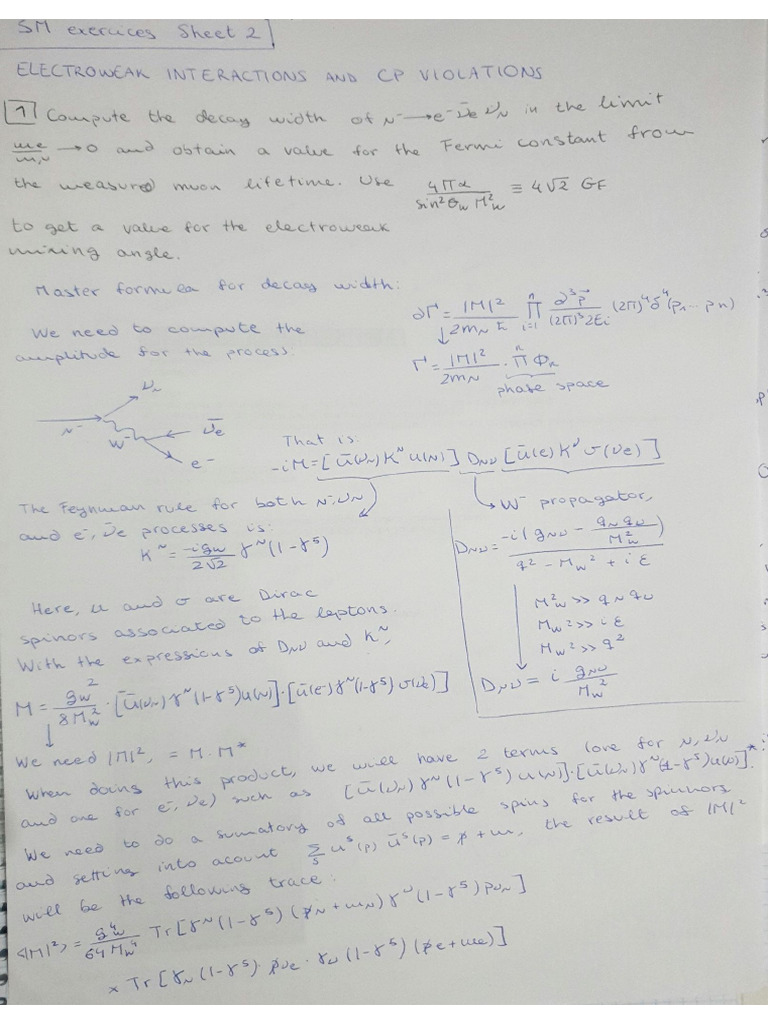 SM exercices Sheet 2
ELECTROWEAK INTERACTIONS AND CP VIOLATIONS
1 Compute the decay width of μ⁻ → e⁻ ν̄e νμ in the limit
me/mμ → 0 and obtain a value for the Fermi constant from
the measured muon lifetime. Use 4πα / sin²θw M²w ≡ 4√2 GF
to get a value for the electroweak
mixing angle.
Master formula for decay width:
dΓ = |M|² / 2mμ ħ ∏ⁿᵢ₌₁ d³p⃗ / (2π)³2Ei (2π)⁴ δ⁴(p₁... pn)
We need to compute the
amplitude for the process.
Γ = |M|² / 2mμ · ∏ⁿ Φn
phase space
νμ
μ⁻
W⁻
ν̄e
e⁻
That is:
-iM = [ū(νμ) K^μ u(μ)] Dμν [ū(e) K^ν v(νe)]
The Feynman rule for both μ⁻, νμ
and e⁻, ν̄e processes is:
K^μ = -i gw / 2√2 γ^μ (1-γ⁵)
W⁻ propagator,
Dμν = -i(gμν - qμqν / M²w) / q² - Mw² + iε
M²w >> qμqν
Mw² >> iε
Mw² >> q²
Dμν = i gμν / Mw²
Here, u and v are Dirac
spinors associated to the leptons.
With the expressions of Dμν and K^μ,
M = gw² / 8Mw² · [ū(νμ) γ^μ (1-γ⁵) u(μ)] · [ū(e⁻) γ^μ (1-γ⁵) v(νe)]
We need |M|², = M · M*
When doing this product, we will have 2 terms (one for μ, νμ
and one for e⁻, νe) such as [ū(νμ) γ^μ (1-γ⁵) u(μ)] · [ū(νμ) γ^μ (1-γ⁵) u(μ)]*:
We need to do a sumatory of all possible spins for the spinnors
and setting into acount Σs u^s(p) ū^s(p) = p̸ + m, the result of |M|²
will be the following trace:
<|M|²> = g⁴w / 64 Mw⁴ Tr[γ^μ (1-γ⁵) (p̸μ + mμ) γ^ν (1-γ⁵) p̸νμ]
× Tr[γμ (1-γ⁵) · p̸νe · γν (1-γ⁵) (p̸e + me)]